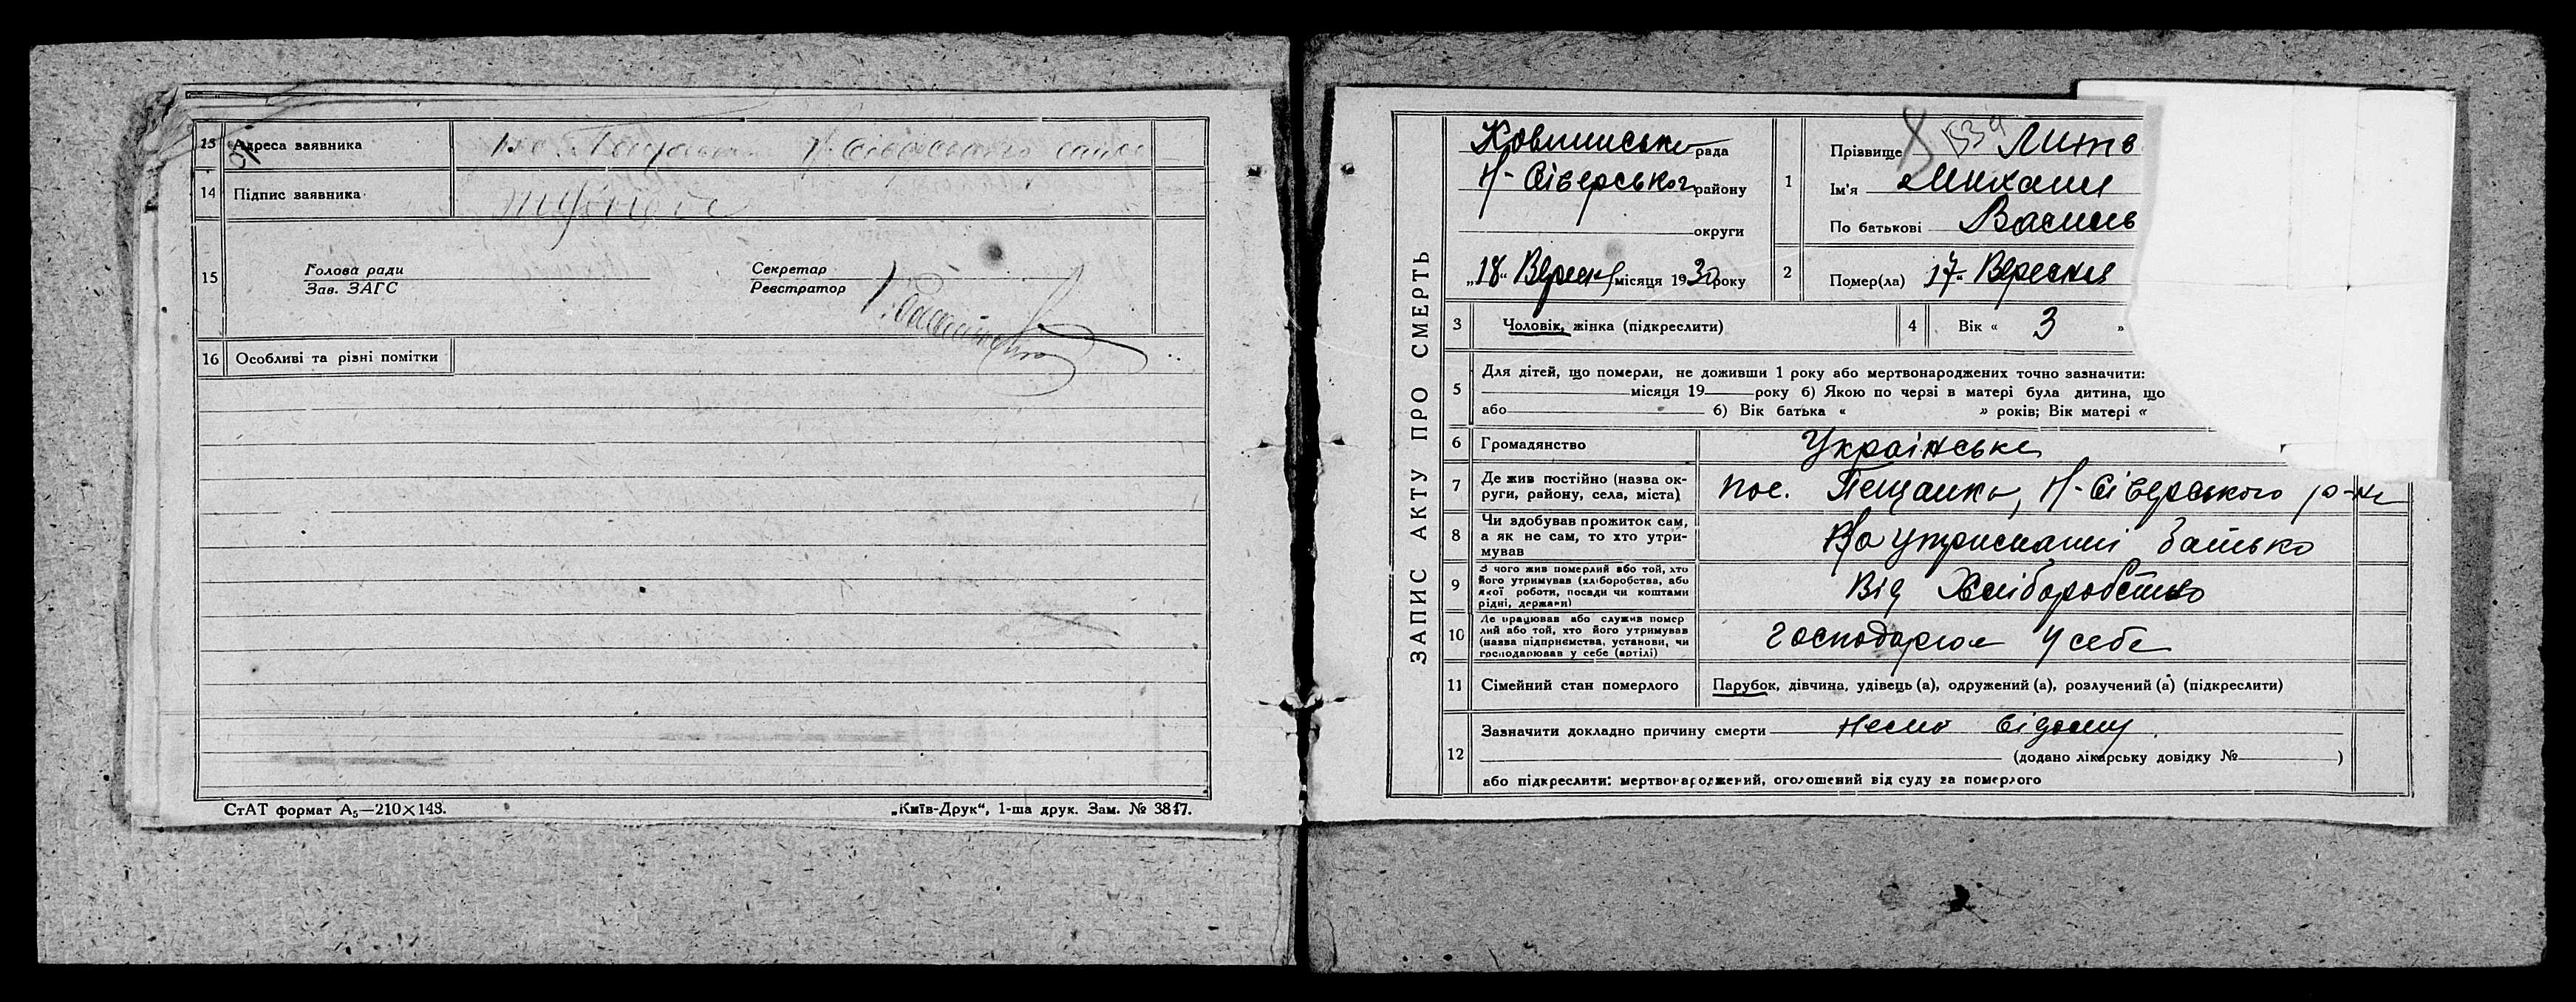 13 Адреса заявника
14 Підпис заявника
15 Голова ради
Зав. ЗАГС
Секретар
Реєстратор
16 Особливі та різні помітки
СтАТ формат А₅—210×143.
„Київ-Друк“, 1-ша друк. Зам. № 3817.
ЗАПИС АКТУ ПРО СМЕРТЬ
рада
Н-Сіверського району
округи
„18“ Вересня місяця 1930 року
1 Прізвище Литв
Ім'я Михаил
По батькові Василь
2 Помер(ла) 17“ Вересня
3 Чоловік, жінка (підкреслити)
4 Вік « 3 »
5 Для дітей, що померли, не доживши 1 року або мертвонароджених точно зазначити:
місяця 19 року б) Якою по черзі в матері була дитина, що
або б) Вік батька « » років; Вік матері «
6 Громадянство Українське
7 Де жив постійно (назва ок-
руги, району, села, міста) пос. Пещанка, Н-Сіверського р-на
8 Чи здобував прожиток сам,
а як не сам, то хто утри-
мував На утриманні батько
9 З чого жив померлий або той, хто
його утримував (хліборобства, або
якої роботи, посади чи коштами
рідні, держави) Від Хліборобства
10 Де працював або служив помер
лий або той, хто його утримував
(назва підприємства, установи, чи
господарював у себе (артілі) господарює у себе
11 Сімейний стан померлого Парубок, дівчина, удівець (а), одружений (а), розлучений (а) (підкреслити)
12 Зазначити докладно причину смерти
(додано лікарську довідку № )
або підкреслити: мертвонароджений, оголошений від суду за померлого